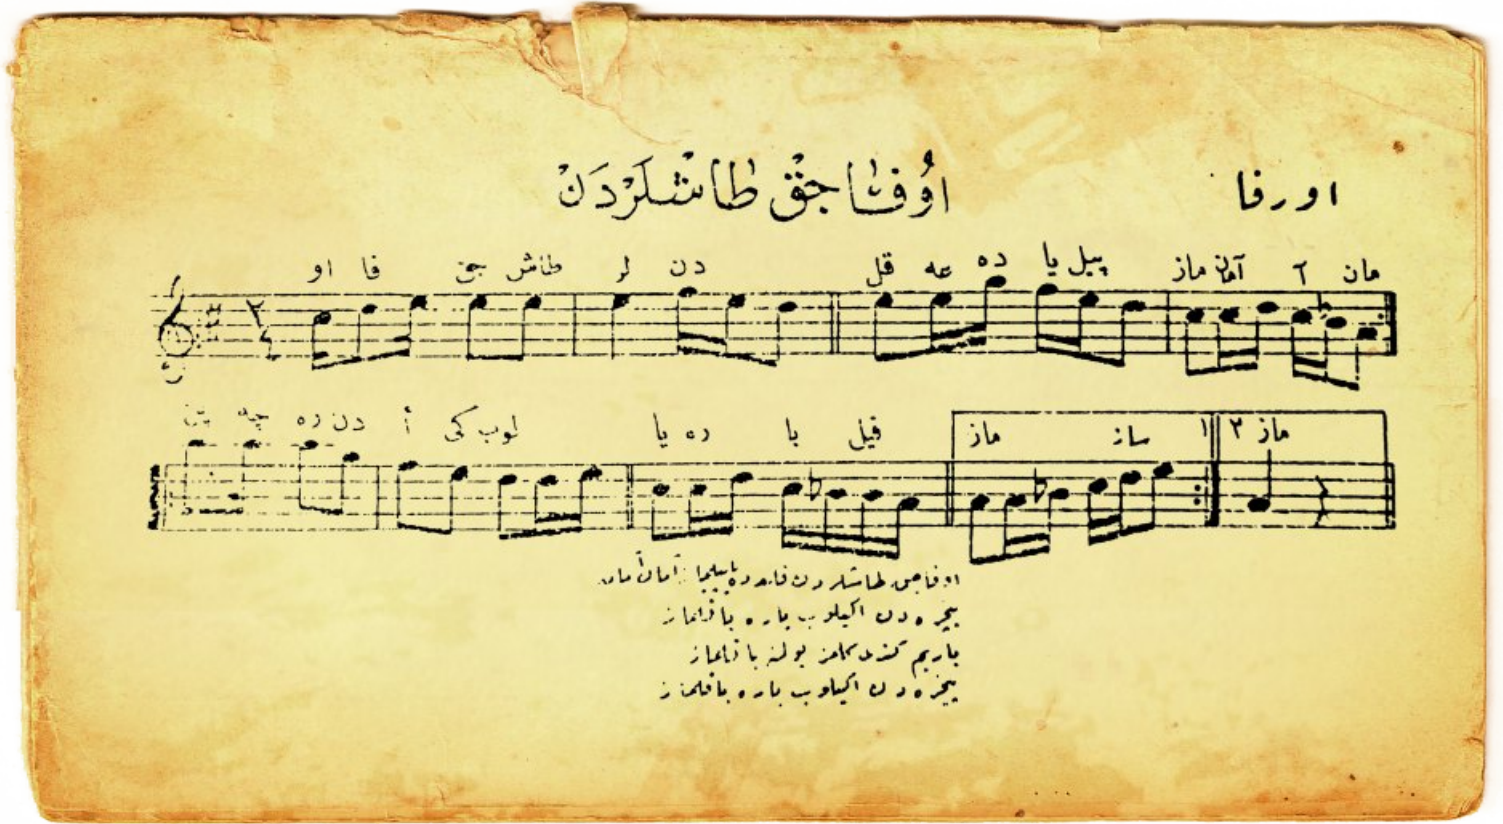 اورفا
اوُفاجْق طاشلَرْدَنْ
او فا جق طاش لر دن قل عه ده یا پیل ماز آمان آ مان
پن چه ره دن أ کی لوب یا ره با قیل ماز ساز ۱ ماز ۲
اوفاجق طاشلردن قلعه ده یاپیلماز آمان آمان
پنجره دن اکیلوب یاره باقلماز
یاریم باقلماز
پنجره دن اکیلوب یاره باقلماز